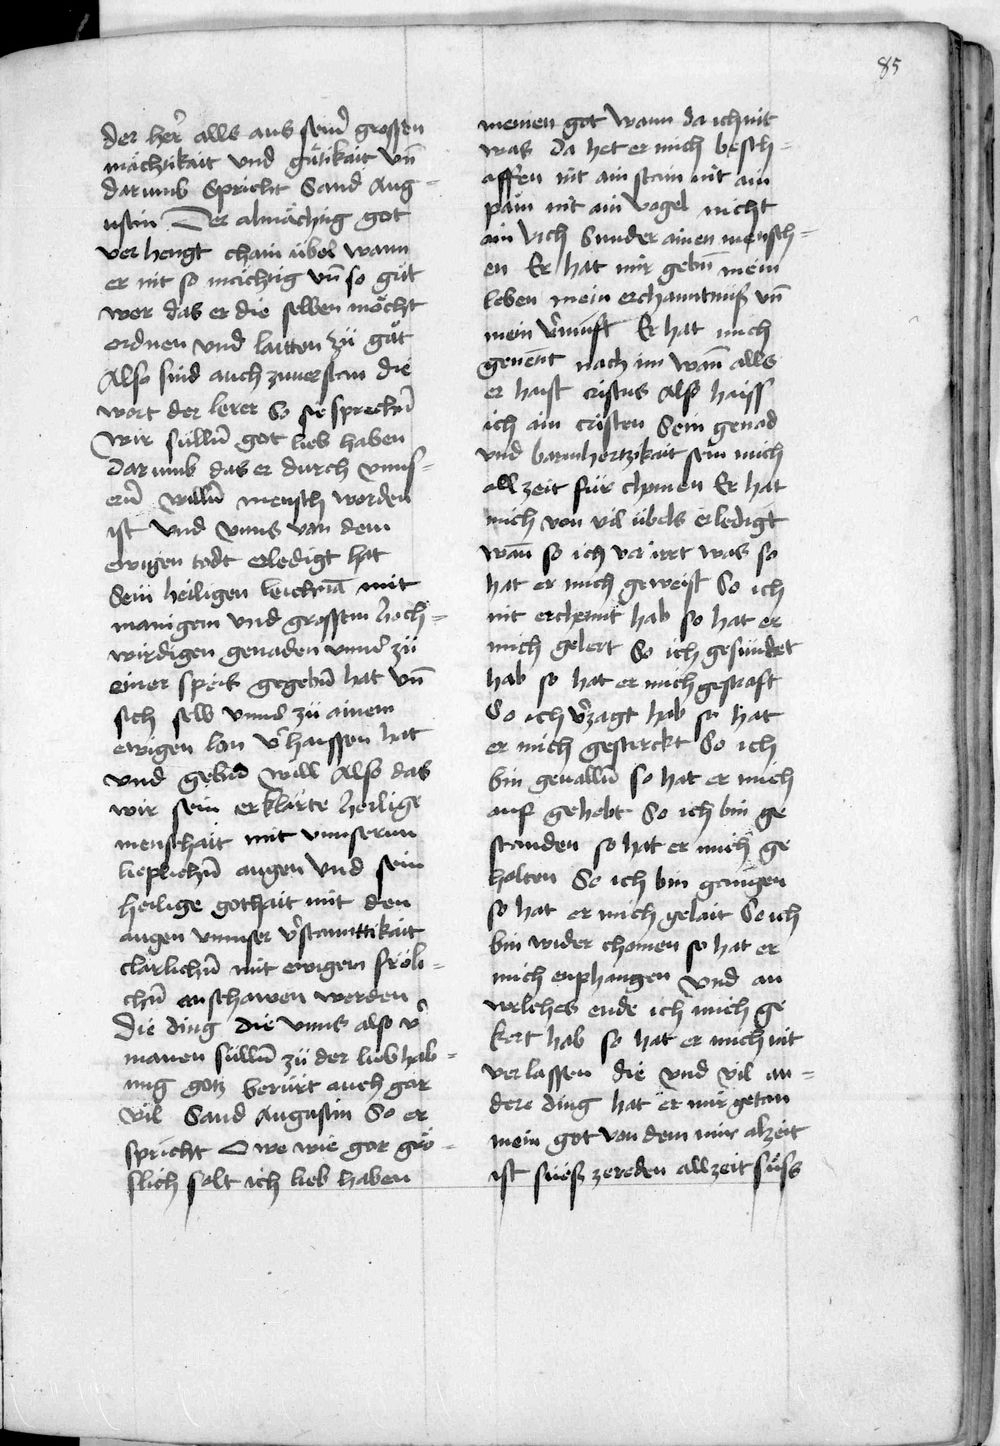 85
der her̄ alls aus sein̄ grossen
mächtikait vnd gütikait vn̄
darumb Spricht Sand Aug=
ustin Der almächtig got
ver hengt chain übel wann
er nit so mächtig vn̄ so güt
wer das er die selben möcht
ordnen vnd laitten zü güt
Also sind auch zuuerstan die
wort der lerer So sie sprechn̄
Wir sülln̄ got lieb haben
Darumb das er durch vnns=
ern̄ willn̄ mensch worden
ist vnd vnns von dem
ewigen todt erledigt hat
Sein heiligen leichnā mit
manigem vnd grossem hoch=
wirdigen genaden vnns zü
einer speis gegebn̄ hat vn̄
sich selb vnns zü ainem
ewigen lon v̄haissen hat
vnd gebn̄ will Also das
wir sein erklärte heilige
menschait mit vnnserun
lieplichn̄ augen Vnd sein
heilige gothait mit den
augen vnnser v̄stanntikait
clarlichn̄ mit ewigem fröli=
chn̄ anschawen werden
Die ding die vnns also v̄
manen sülln̄ zü der lieb hab=
ung gotz berürt auch gar
vil Sand Augustin So er
spricht O we wie gar grö=
slich solt ich lieb haben
meinen got Wann da ich nit
was Da het er mich besch=
affen nit ain stain nit ain
päm nit ain vogel nicht
ain vich Sunder ainen mensch=
en Er hat mir gebn̄ mein
leben mein erchanntnüß vn̄
mein v̄nunft Er hat mich
genent nach im Wan̄ alls
er haist cristus Also haiss
ich ain cristen Sein genad
vnd barmhertzikait sein mich
allzeit für chömen Er hat
mich von vil übels erledigt
Wan̄ so ich verirrt was so
hat er mich geweist So ich
nit erchennt hab so hat er
mich gelert So ich gesündet
hab so hat er mich gestraft
So ich v̄zagt hab so hat
er mich gesterckt So ich
bin geualln̄ so hat er mich
auf gehebt So ich bin ge
standen so hat er mich ge
halten So ich bin gangen
so hat er mich gelait So ich
bin wider chomen so hat er
mich enphangen Vnd an
welches ende ich mich ge
kert hab so hat er mich nit
verlassen die vnd vil an=
dere ding hat er mir getan
mein got von dem mir alzeit
ist süeß zereden allzeit süss